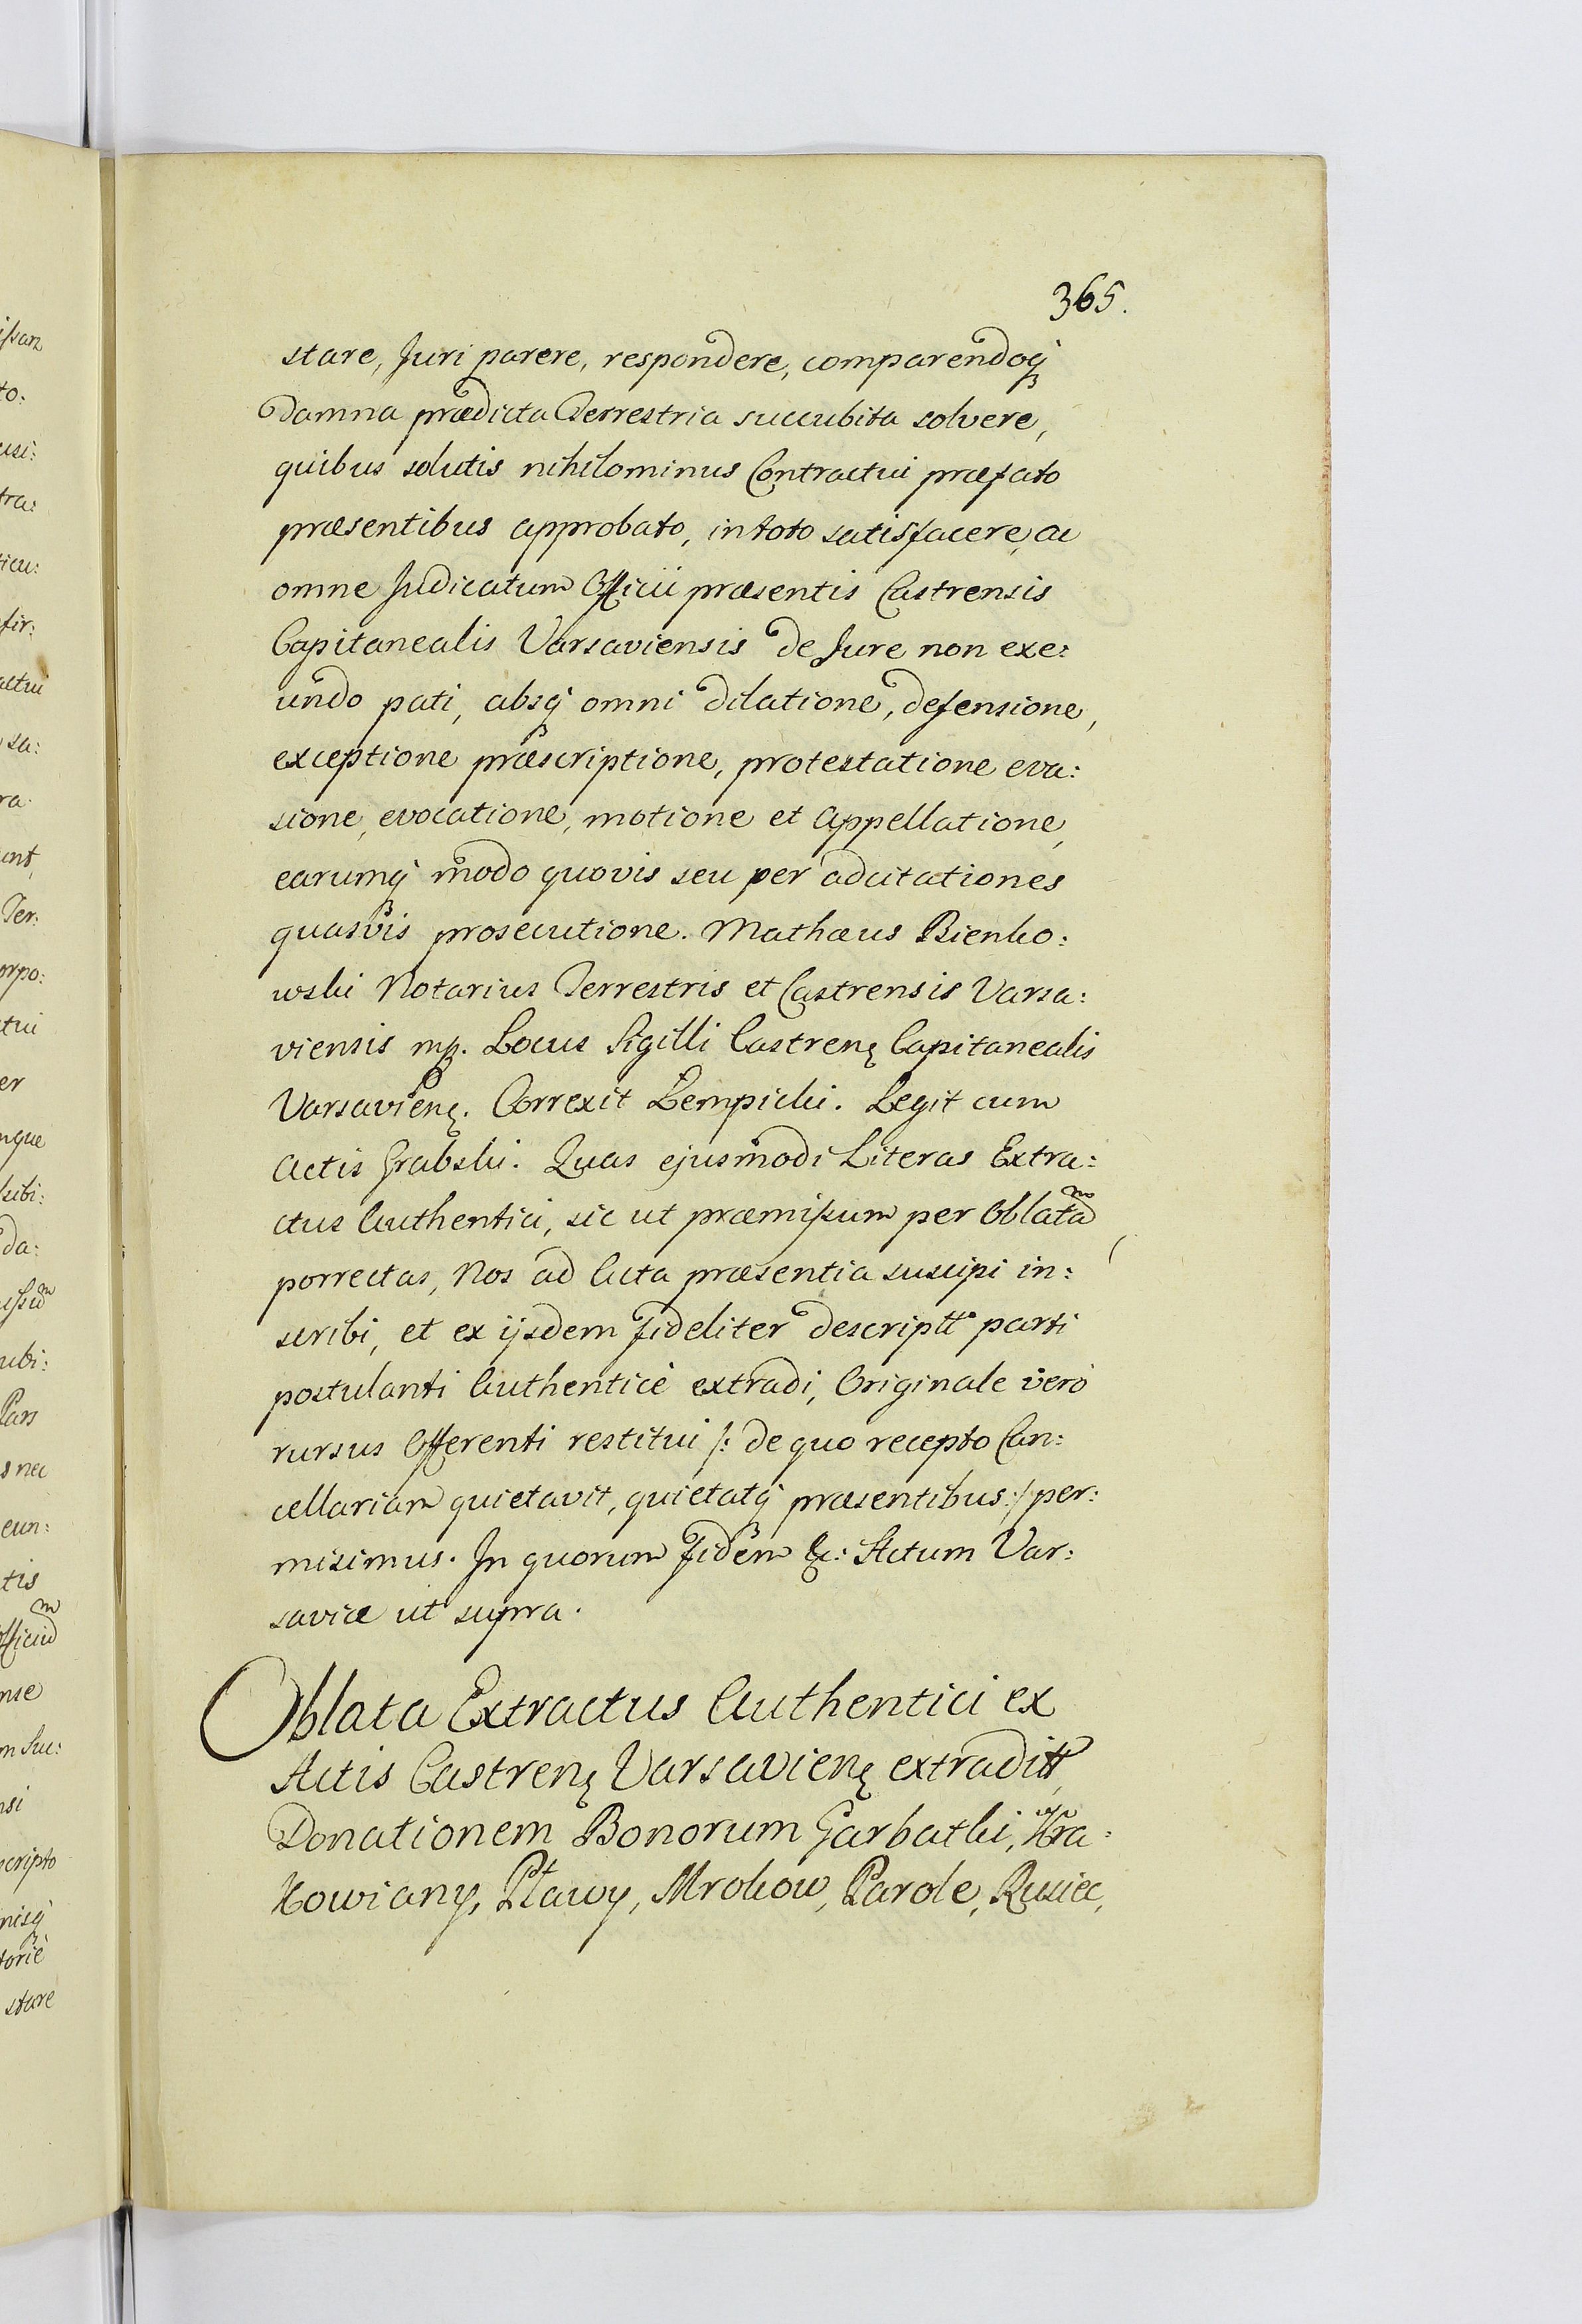 365.
stare, Juri parere, respondere, comparendoq́
damna prædicta Terrestria succubita solvere,
quibus solutis nihilominus Contractui præfato
præsentibus approbato, in toto satisfacere, ac
omne Judicatum Officii præsentis Castrensis
Capitanealis Varsaviensis de Jure non exe:
undo pati, absq́ omni dilatione, defensione,
exceptione præscriptione, protestatione eva:
sione, evocatione, motione et Appellatione,
earumq́ modo quovis seu per adcitationes
quasvis prosecutione. Mathæus Bienko:
wski Notarius Terrestris et Castrensis Varsa:
viensis mp. Locus Sigilli Castrenę Capitanealis
Varsavienę. Correxit Lempicki. Legit cum
Actis Grabski. Quas ejusmodi Literas Extra:
ctus Authentici, sic ut præmissum per Oblatam
porrectas, Nos ad Acta præsentia suscipi in:
scribi, et ex ijsdem fideliter descriptt parti
postulanti Authenticè extradi, Originale verò
rursus Offerenti restitui /: de quo recepto Can:
cellariam quietavit, quietatq́ præsentibus :/ per:
misimus. In quorum fidem &c: Actum Var:
saviæ ut supra.
Oblata Extractus Authentici ex
Actis Castrenę Varsavienę extraditt,
Donationem Bonorum Garbatki, Kra:
kowiany, Pławy, Mrokow, Parole, Rusiec,
issan
to:
usi:
tra:
ricu:
fir:
sa:
ra
Ter:
orpo:
er
sibi:
da:
ubi:
Pars
s nec
eun:
tis
nse
m Suc:
nsi
scripto
nisq́
toriè
stare